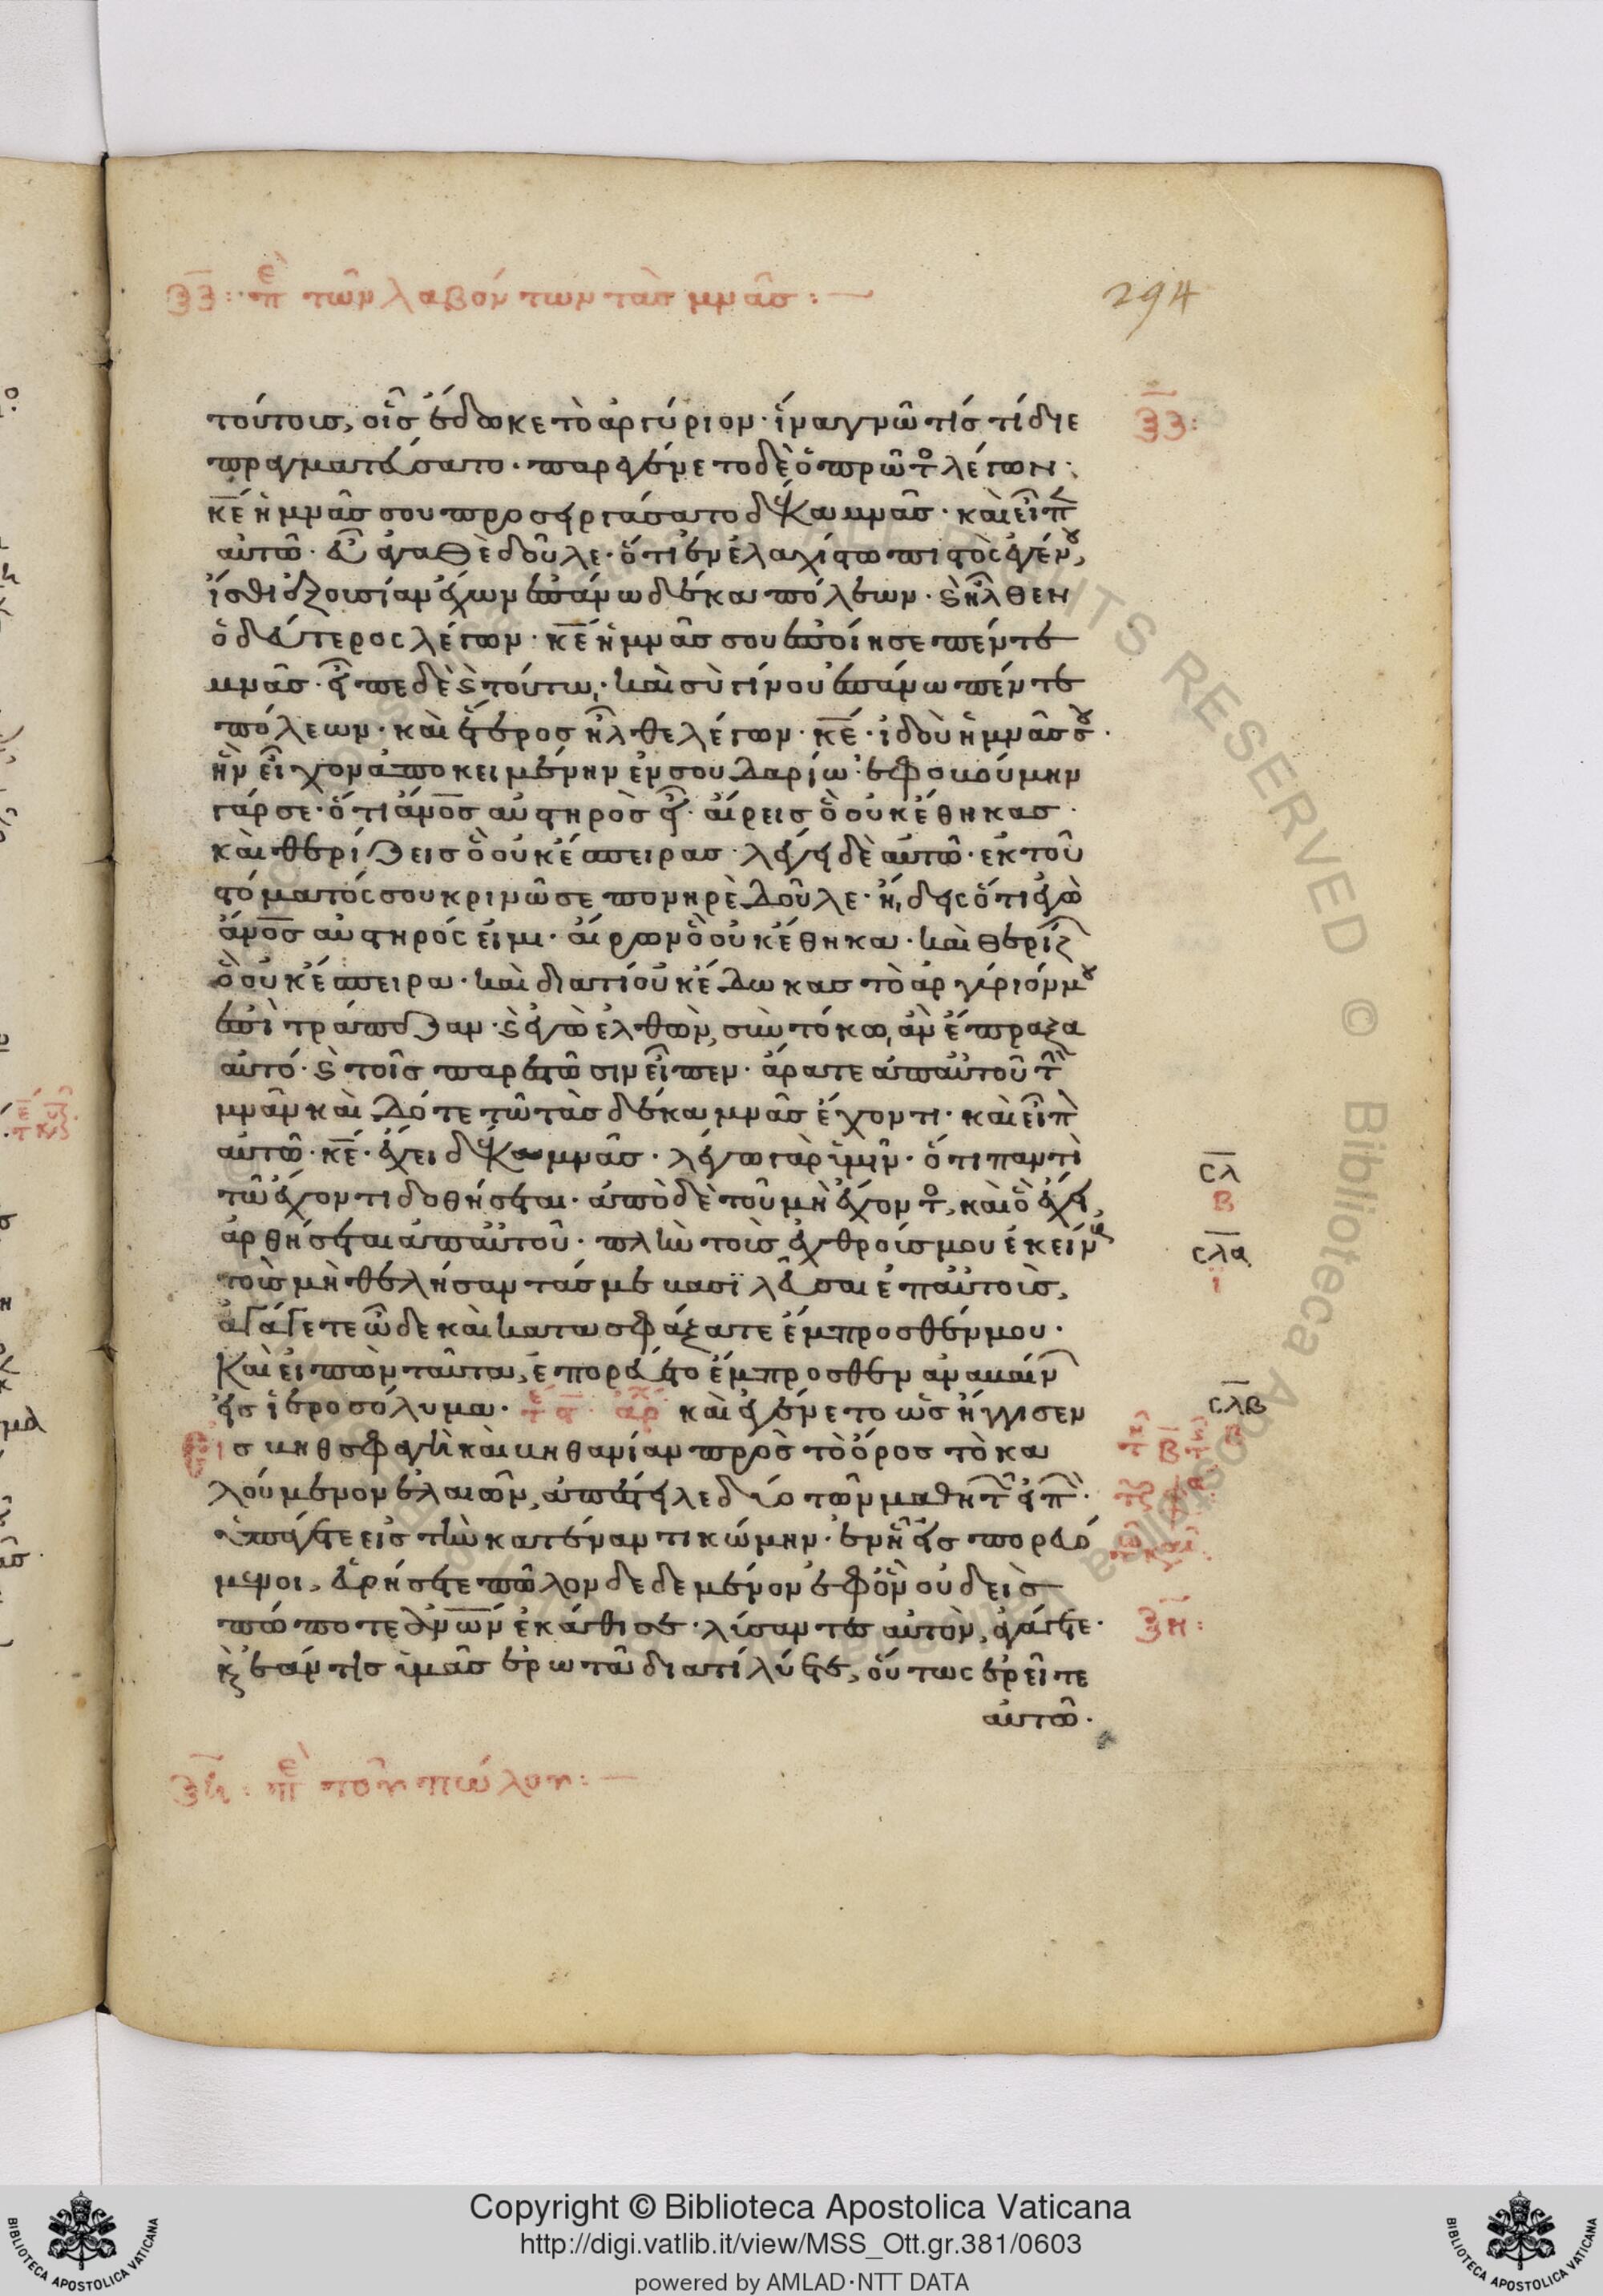 ξζ: πε τῶν λαβόντων τὰσ μνᾶσ:
294
τούτοισ, οἷσ ἔδωκε τὸ ἀργύριον· ἵνα γνῶ τίσ τί διε
ξζ:
πραγματεύσατο. παρεγένετο δὲ ὁ πρῶτο λέγων·
κ̅ε̅ ἡ μνᾶσ σου προσειργάσατο δέκα μνᾶσ. καὶ εἶπ
αὐτῶ. εὖ ἀγαθὲ δοῦλε· ὅτι ἐν ἐλαχίστω πιστὸς ἐγένου,
ἴσθι ἐξουσίαν ἔχων ἐπάνω δέκα πόλεων. ϗ ἦλθεν
ὁ δεύτερος λέγων. κ̅ε̅ ἡ μνᾶσ σου ἐποίησε πέντε
μνᾶσ. εἶπε δὲ ϗ τούτω. καὶ σὺ γίνου ἐπάνω πέντε
πόλεων. καὶ ἕτεροσ ἦλθε λέγων. κ̅ε̅. ἰδοὺ ἡ μνᾶσ σου.
ἣν εἶχον ἀποκειμένην ἐν σουδαρίω. ἐφοβούμην
γάρ σε. ὅτι ἄνο̅σ̅ αὐστηρὸσ εἶ. αἴρεισ ὃ οὐκ ἔθηκασ.
καὶ θερίζεισ ὃ οὐκ ἔσπειρασ. λέγει δὲ αὐτῶ. ἐκ τοῦ
στόματός σου κρινῶ σε πονηρὲ δοῦλε. ἤδεις ὅτι ἐγὼ
ἄνο̅σ̅ αὐστηρός εἰμι. αἴρων ὃ οὐκ ἔθηκα. καὶ θερίζ
ὃ οὐκ ἔσπειρα. καὶ διατί οὐκ ἔδωκασ τὸ ἀργύριόν μου
ἐπὶ τράπεζαν. ϗ ἐγὼ ἐλθὼν, σὺν τόκω, ἂν ἔπραξα
αὐτό. ϗ τοῖσ παρεστῶσιν εἶπεν. ἄρατε ἀπ αὐτοῦ τ
μνᾶν καὶ δότε τῶ τὰσ δέκα μνᾶσ ἔχοντι. καὶ εἶπ
αὐτῶ. κ̅ε̅. ἔχει δέκα μνᾶσ. λέγω γὰρ ὑμῖν. ὅτι παντὶ
σ̅λ̅
τῶ ἔχοντι δοθήσεται. ἀπὸ δὲ τοῦ μὴ ἔχοντο, καὶ ὃ ἔχει,
β
ἀρθήσεται ἀπ αὐτοῦ. πλὴν τοὺσ ἐχθρούσ μου ἐκείν
σ̅λ̅α̅
τοὺσ μὴ θελήσαντάσ με βασιλεῦσαι ἐπ αὐτοὺσ,
ϊ
ἀγάγετε ὧδε καὶ κατασφάξατε ἔμπροσθέν μου.
Καὶ εἰπὼν ταῦτα, ἐπορεύετο ἔμπροσθεν ἀναβαίν
εἰσ ἱεροσόλυμα. ἀρχ καὶ ἐγένετο ὡσ ἤγγισεν
σ̅λ̅β̅
εἰσ βηθσφαγὴ καὶ βηθανίαν πρὸσ τὸ ὄροσ τὸ κα
λούμενον ἐλαιῶν, ἀπέστειλε δύο τῶν μαθητ εἰπ.
ὑπάγετε εἰσ τὴν κατέναντι κώμην. ἐν ἧ εἰσπορευό
μενοι, εὑρήσετε πῶλον δεδεμένον ἐφ ὃν οὐδεὶσ
πώποτε ἀν̅ω̅ν ἐκάθισε. λύσαντεσ αὐτὸν, ἀγάγετε.
ξη:
κ ἐάν τισ ὑμᾶσ ἐρωτᾶ διατί λύετε, οὕτωσ ἐρεῖτε
αὐτῶ.
ξη: πε τοῦ πώλου:
Copyright © Biblioteca Apostolica Vaticana
http://digi.vatlib.it/view/MSS_Ott.gr.381/0603
powered by AMLAD·NTT DATA